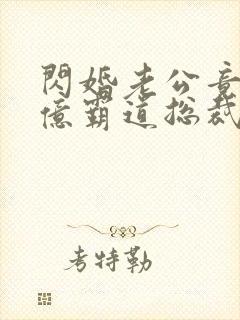 閃婚老公竟
億霸道总裁
考特勒